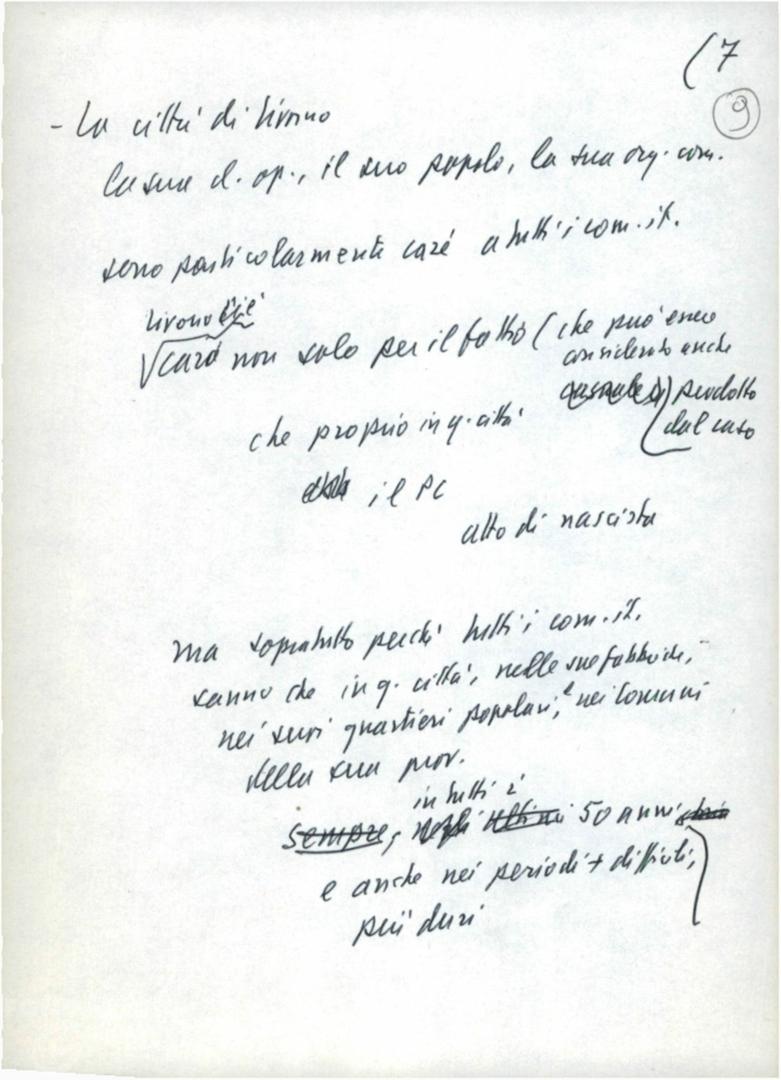 (7
9
- La città di Livorno
la sua cl. op., il suo popolo, la sua org. com.
sono particolarmente care a tutti i com. it.
Livorno ci è
cara non solo per il fatto (che può essere
considerato anche
casuale) prodotto
dal caso
che proprio in q. città
il PC
atto di nascita
ma sopratutto perché tutti i com. it.
sanno che in q. città, nelle sue fabbriche,
nei suoi quartieri popolari, e nei Comuni
della sua prov.
in tutti i
sempre, negli ultimi 50 anni
e anche nei periodi + difficili,
più duri